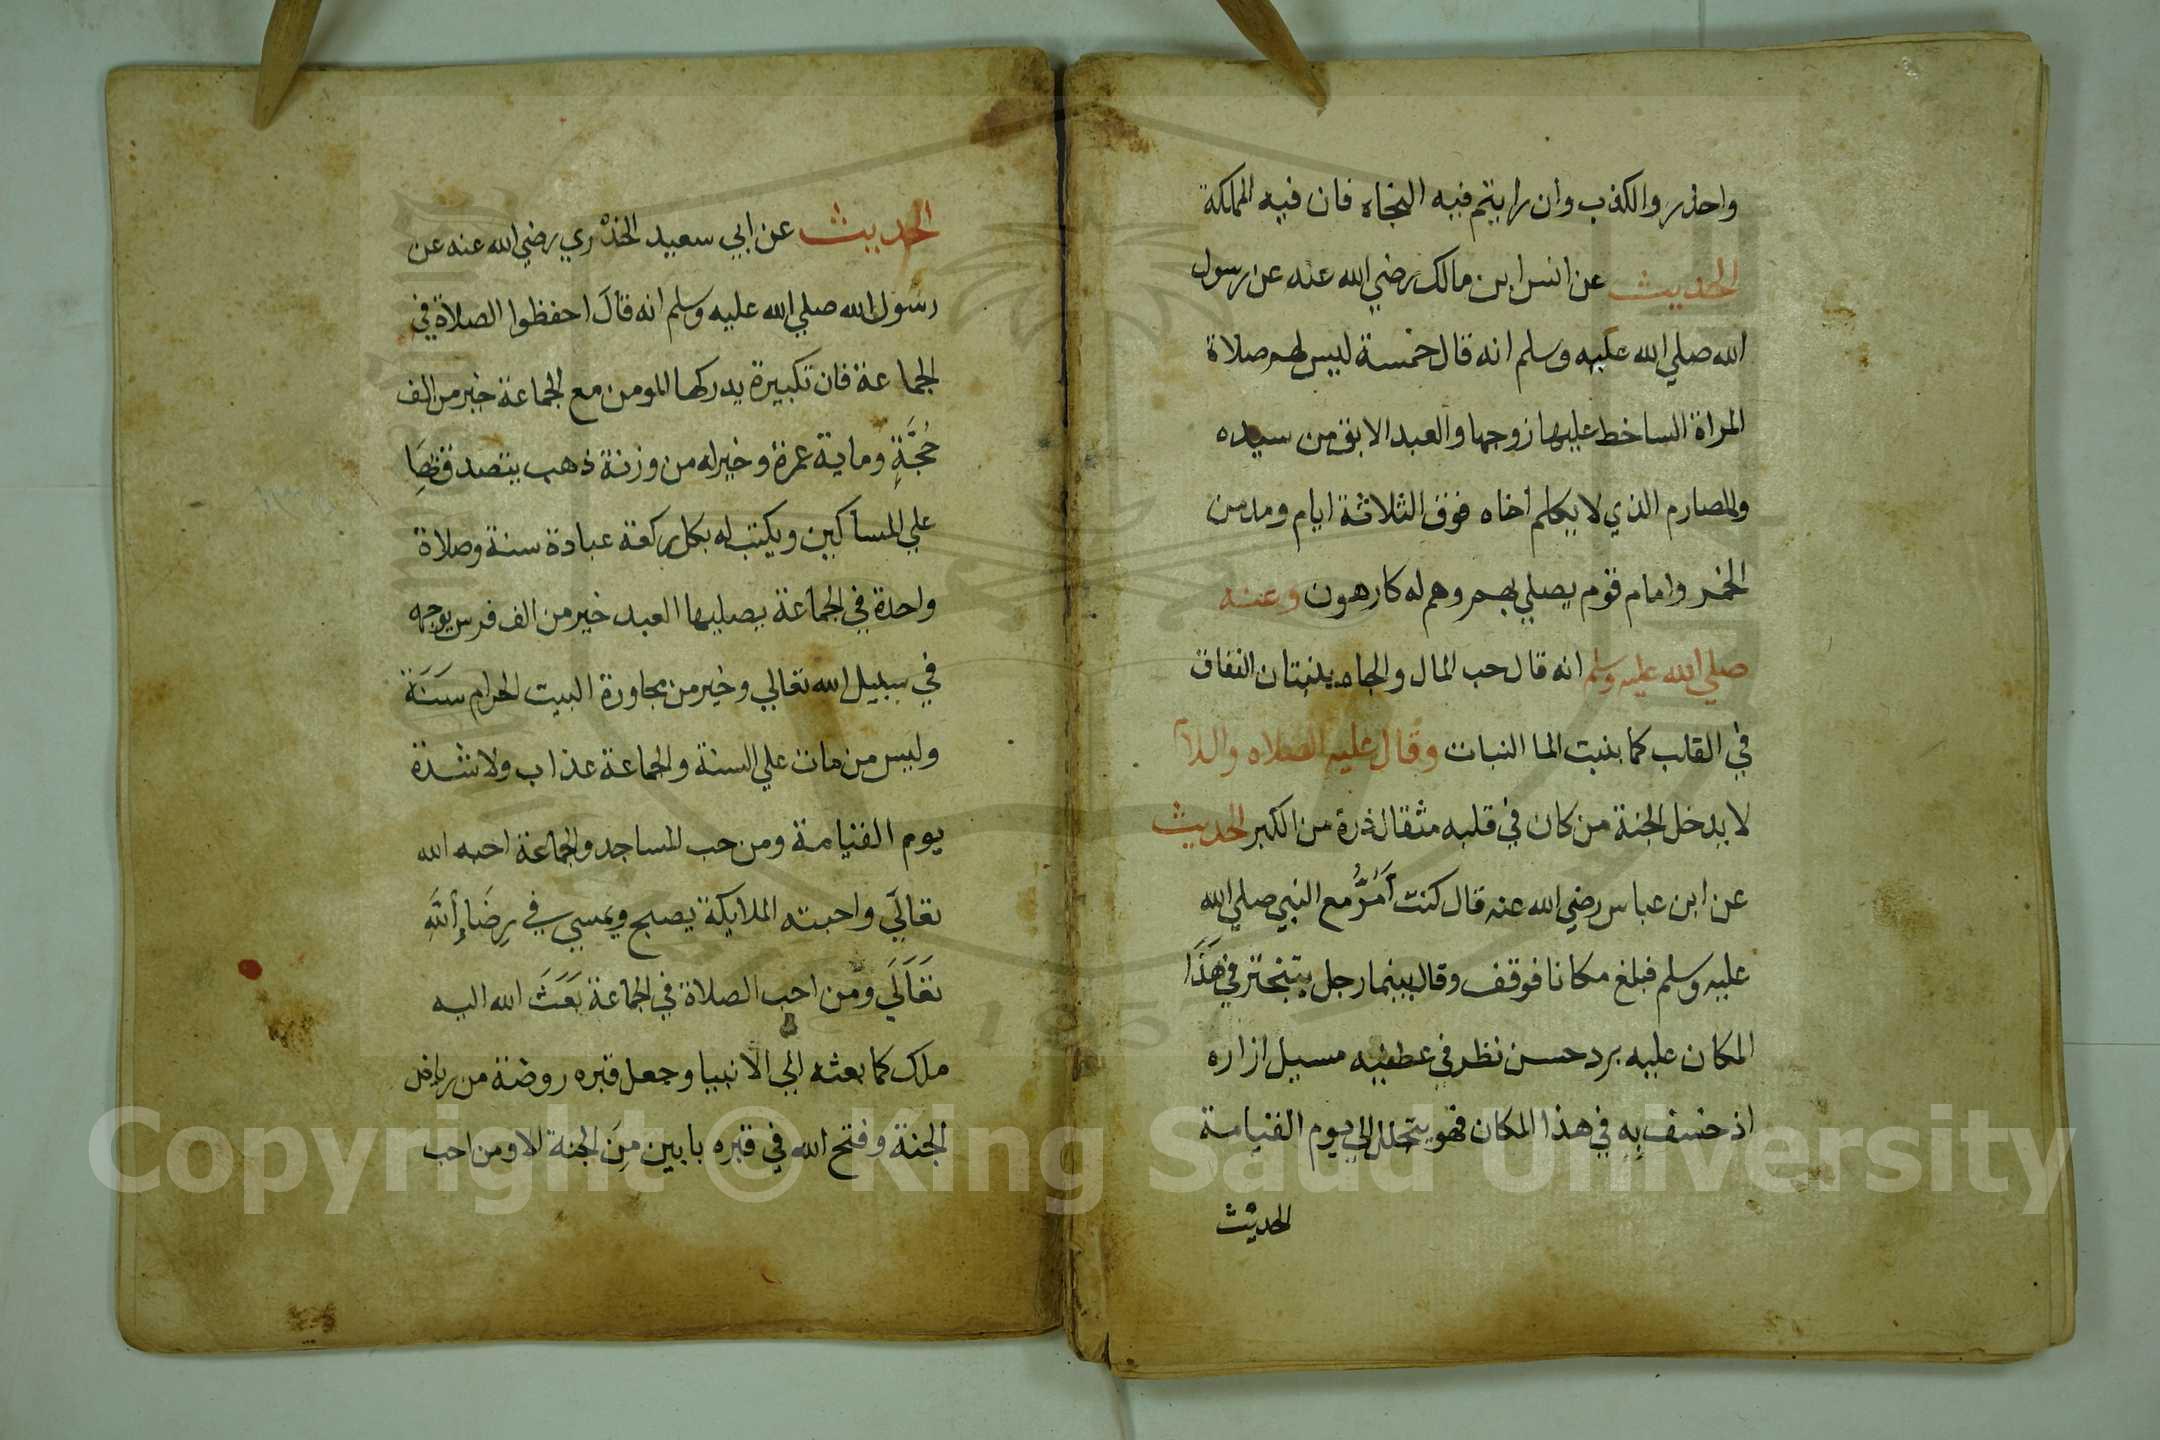 واحذر والكذب وان رايتم فيه النجاه فان فيه الهلكة
الحديث عن انس ابن مالك رضي الله عنه عن رسول
الله صلي الله عليه وسلم انه قال خمسة ليس لهم صلاة
المراة الساخط عليها زوجها والعبد الابق من سيده
والمصارم الذي لا يكلم أخاه فوق الثلاثة ايام ومدمن
الخمر وامام قوم يصلي بهم وهم له كارهون وعنه
صلي الله عليه وسلم انه قال حب المال والجاه ينبتان النفاق
في القلب كما ينبت الما النبات وقال عليه الصلاه والسلا
لا يدخل الجنة من كان في قلبه مثقال ذرة من الكبر الحديث
عن ابن عباس رضي الله عنه قال كنت أَمُرُّ مع النبي صلي الله
عليه وسلم فبلغ مكانا فوقف وقال بينما رجل يتبختر في هَذَا
المكان عليه برد حسن نظر في عطفيه مسبل ازاره
اذ خسف بِهِ في هذا المكان فهو يتجلل الي يوم القيامة
الحديث
الحديث عن ابي سعيد الخدْري رضي الله عنه عن
رسول الله صلي الله عليه وسلم انه قال احفظوا الصلاة في
الجماعة فان تكبيرة يدركها المومن مع الجماعة خير من الف
حُجَّةٍ وماية عمرة وخير له من وزنة ذهب يتصدق بِهَا
علي المساكين ويكتب له بكل ركعة عبادة سنة وصلاة
واحدة في الجماعة يصليها العبد خير من الف فرس يوجهه
في سبيل الله تعالي وخير من مجاورة البيت الحرام سَنَة
وليس من مات علي السنة والجماعة عذاب ولا شدة
يوم القيامة ومن حب المساجد والجماعة احبه الله
تعالَي واحبته الملايكة يصبح ويمسي في رِضَاءِ أللَّهِ
تَعَالَي ومن احب الصلاة في الجماعة بَعَثَ الله اليه
ملك كما بعثه الي الانبيا وجعل قبره روضة من رياض
الجنة وفتح الله في قبره بابين مِنَ الجنة الا ومن احب
Copyright © King Saud University
1957